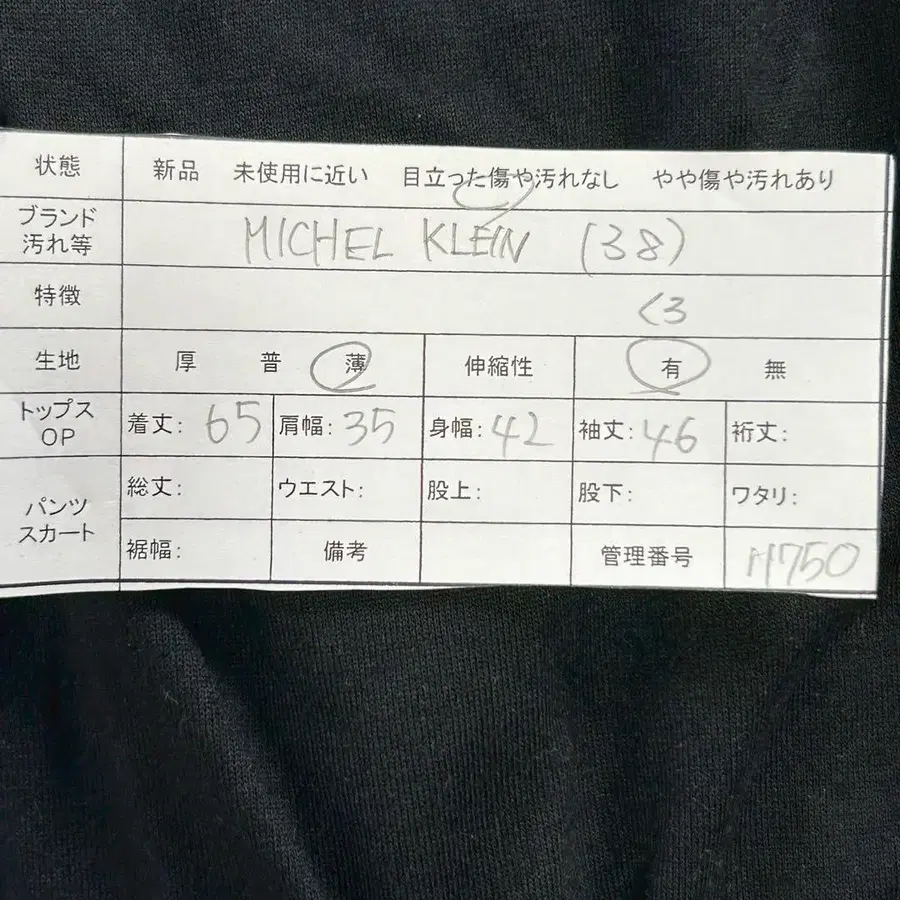 状態 新品 未使用に近い 目立った傷や汚れなし やや傷や汚れあり
ブランド
汚れ等 MICHEL KLEIN (38)
特徴 <3
生地 厚 普 薄 伸縮性 有 無
トップス
OP 着丈: 65 肩幅: 35 身幅: 42 袖丈: 46 裄丈:
パンツ
スカート 総丈: ウエスト: 股上: 股下: ワタリ:
裾幅: 備考 管理番号 H750